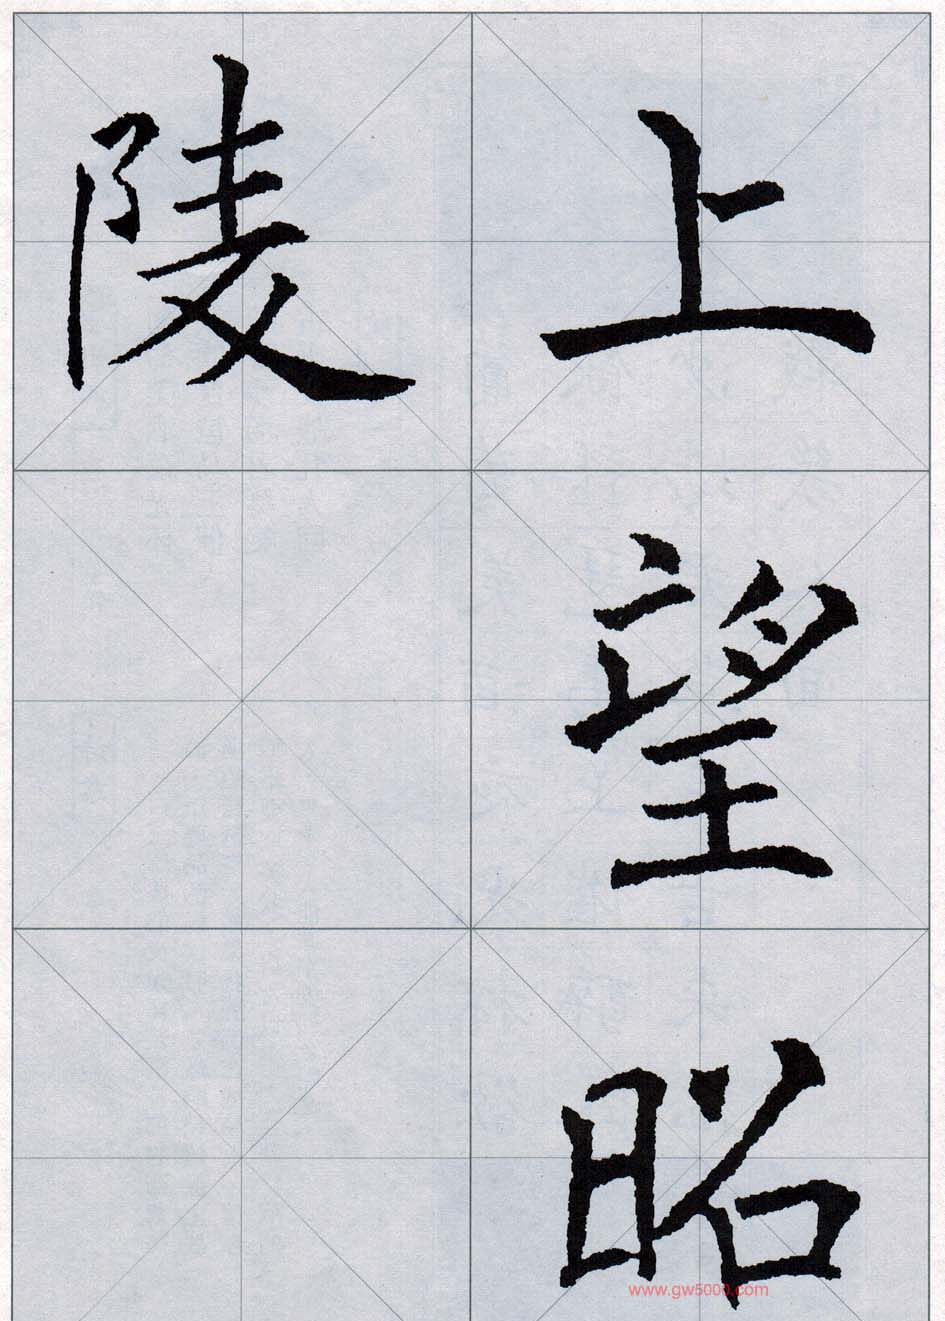 上望昭
陵
www.gw5000.com